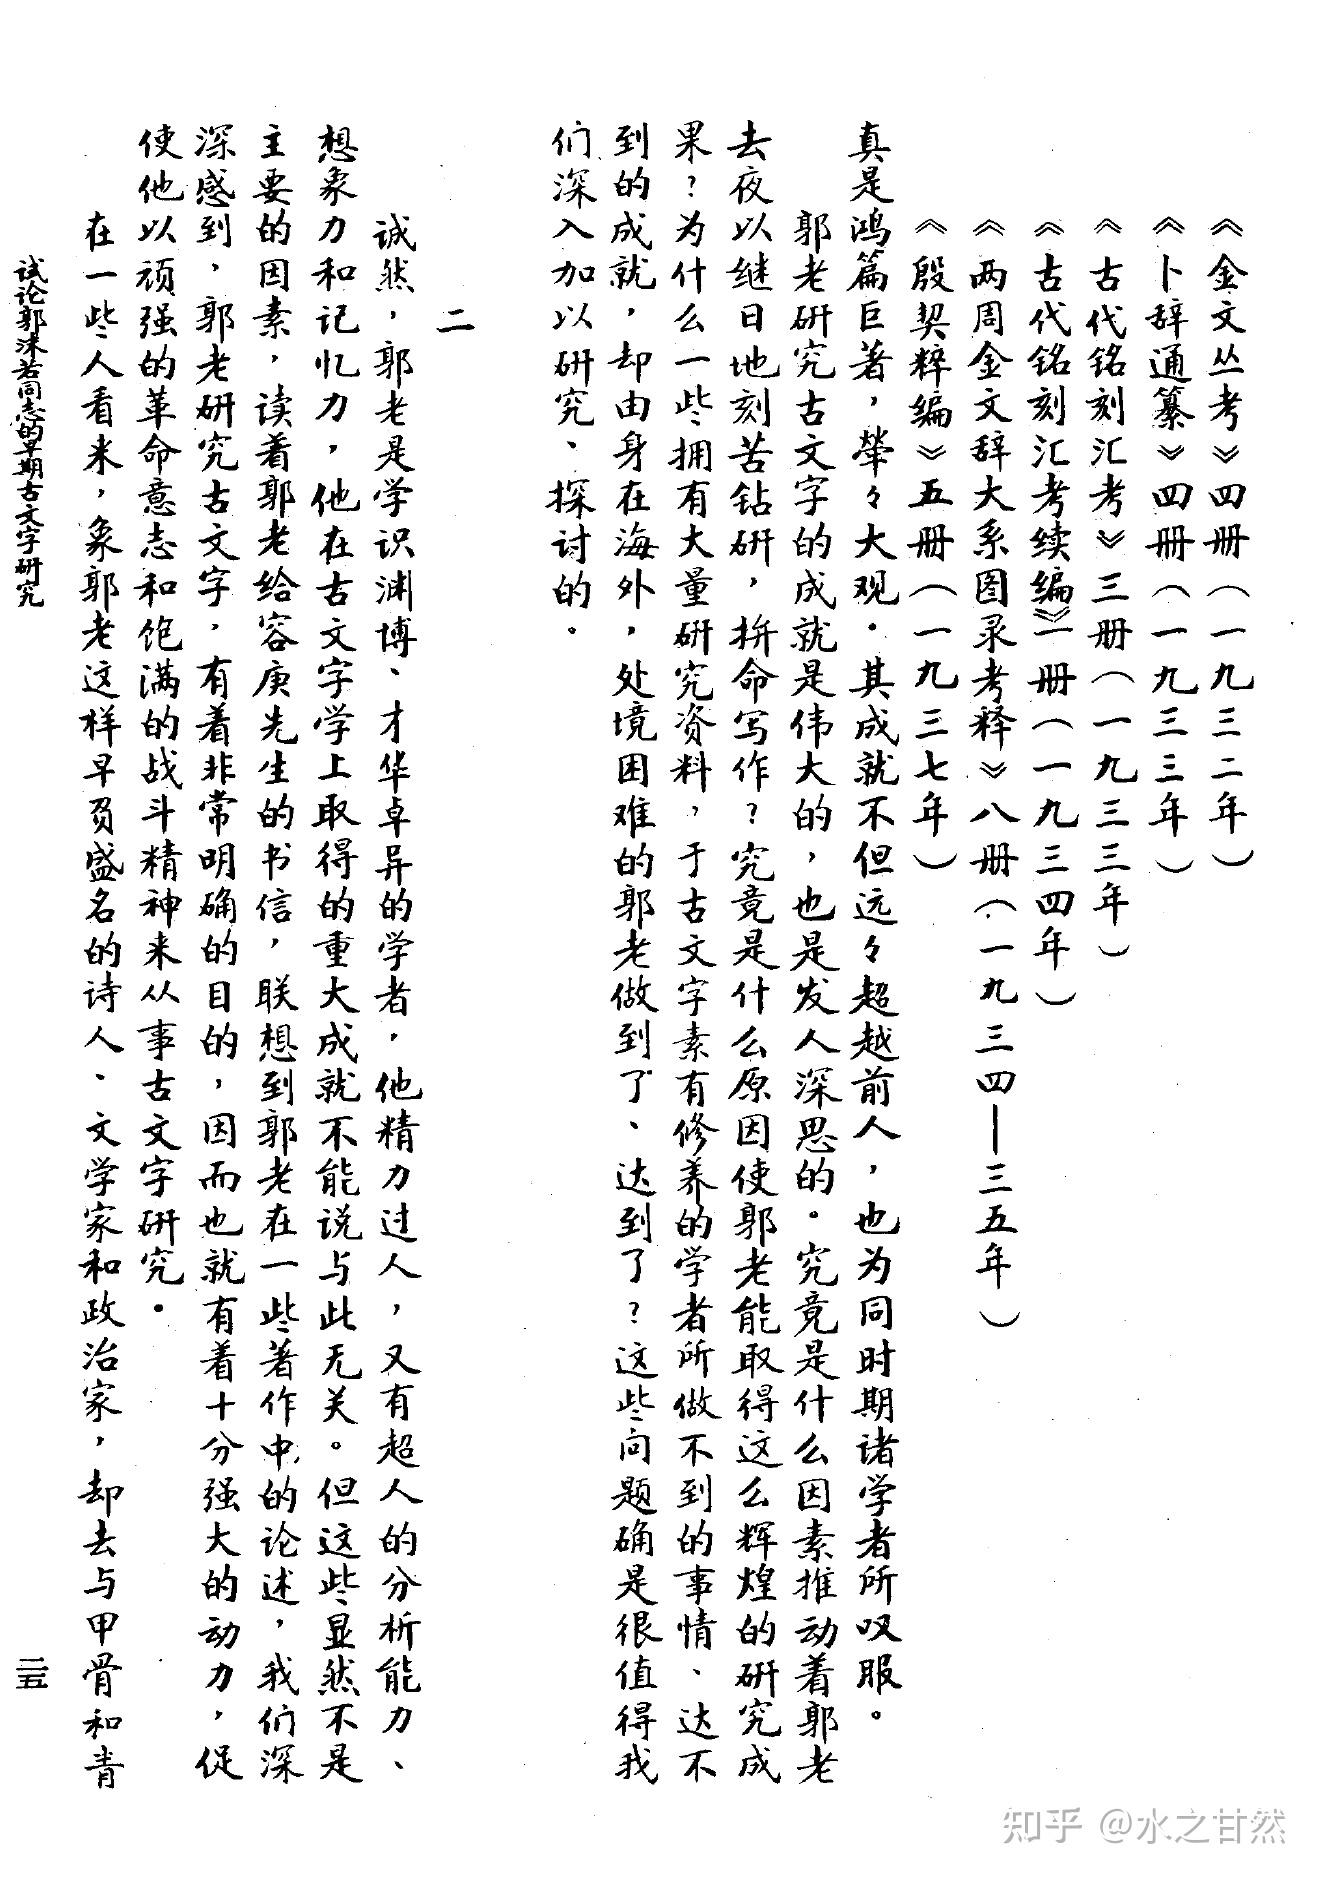 《金文丛考》四册（一九三二年）
《卜辞通纂》四册（一九三三年）
《古代铭刻汇考》三册（一九三三年）
《古代铭刻汇考续编》一册（一九三四年）
《两周金文辞大系图录考释》八册（一九三四—三五年）
《殷契粹编》五册（一九三七年）
真是鸿篇巨著，荦々大观。其成就不但远々超越前人，也为同时期诸学者所叹服。
郭老研究古文字的成就是伟大的，也是发人深思的。究竟是什么因素推动着郭老
去夜以继日地刻苦钻研，拚命写作？究竟是什么原因使郭老能取得这么辉煌的研究成
果？为什么一些拥有大量研究资料，于古文字素有修养的学者所做不到的事情、达不
到的成就，却由身在海外，处境困难的郭老做到了、达到了？这些问题确是很值得我
们深入加以研究、探讨的。
二
诚然，郭老是学识渊博、才华卓异的学者，他精力过人，又有超人的分析能力、
想象力和记忆力，他在古文字学上取得的重大成就不能说与此无关。但这些显然不是
主要的因素，读着郭老给容庚先生的书信，联想到郭老在一些著作中的论述，我们深
深感到，郭老研究古文字，有着非常明确的目的，因而也就有着十分强大的动力，促
使他以顽强的革命意志和饱满的战斗精神来从事古文字研究。
在一些人看来，象郭老这样早负盛名的诗人、文学家和政治家，却去与甲骨和青
试论郭沫若同志的早期古文字研究
二五
知乎 @水之甘然